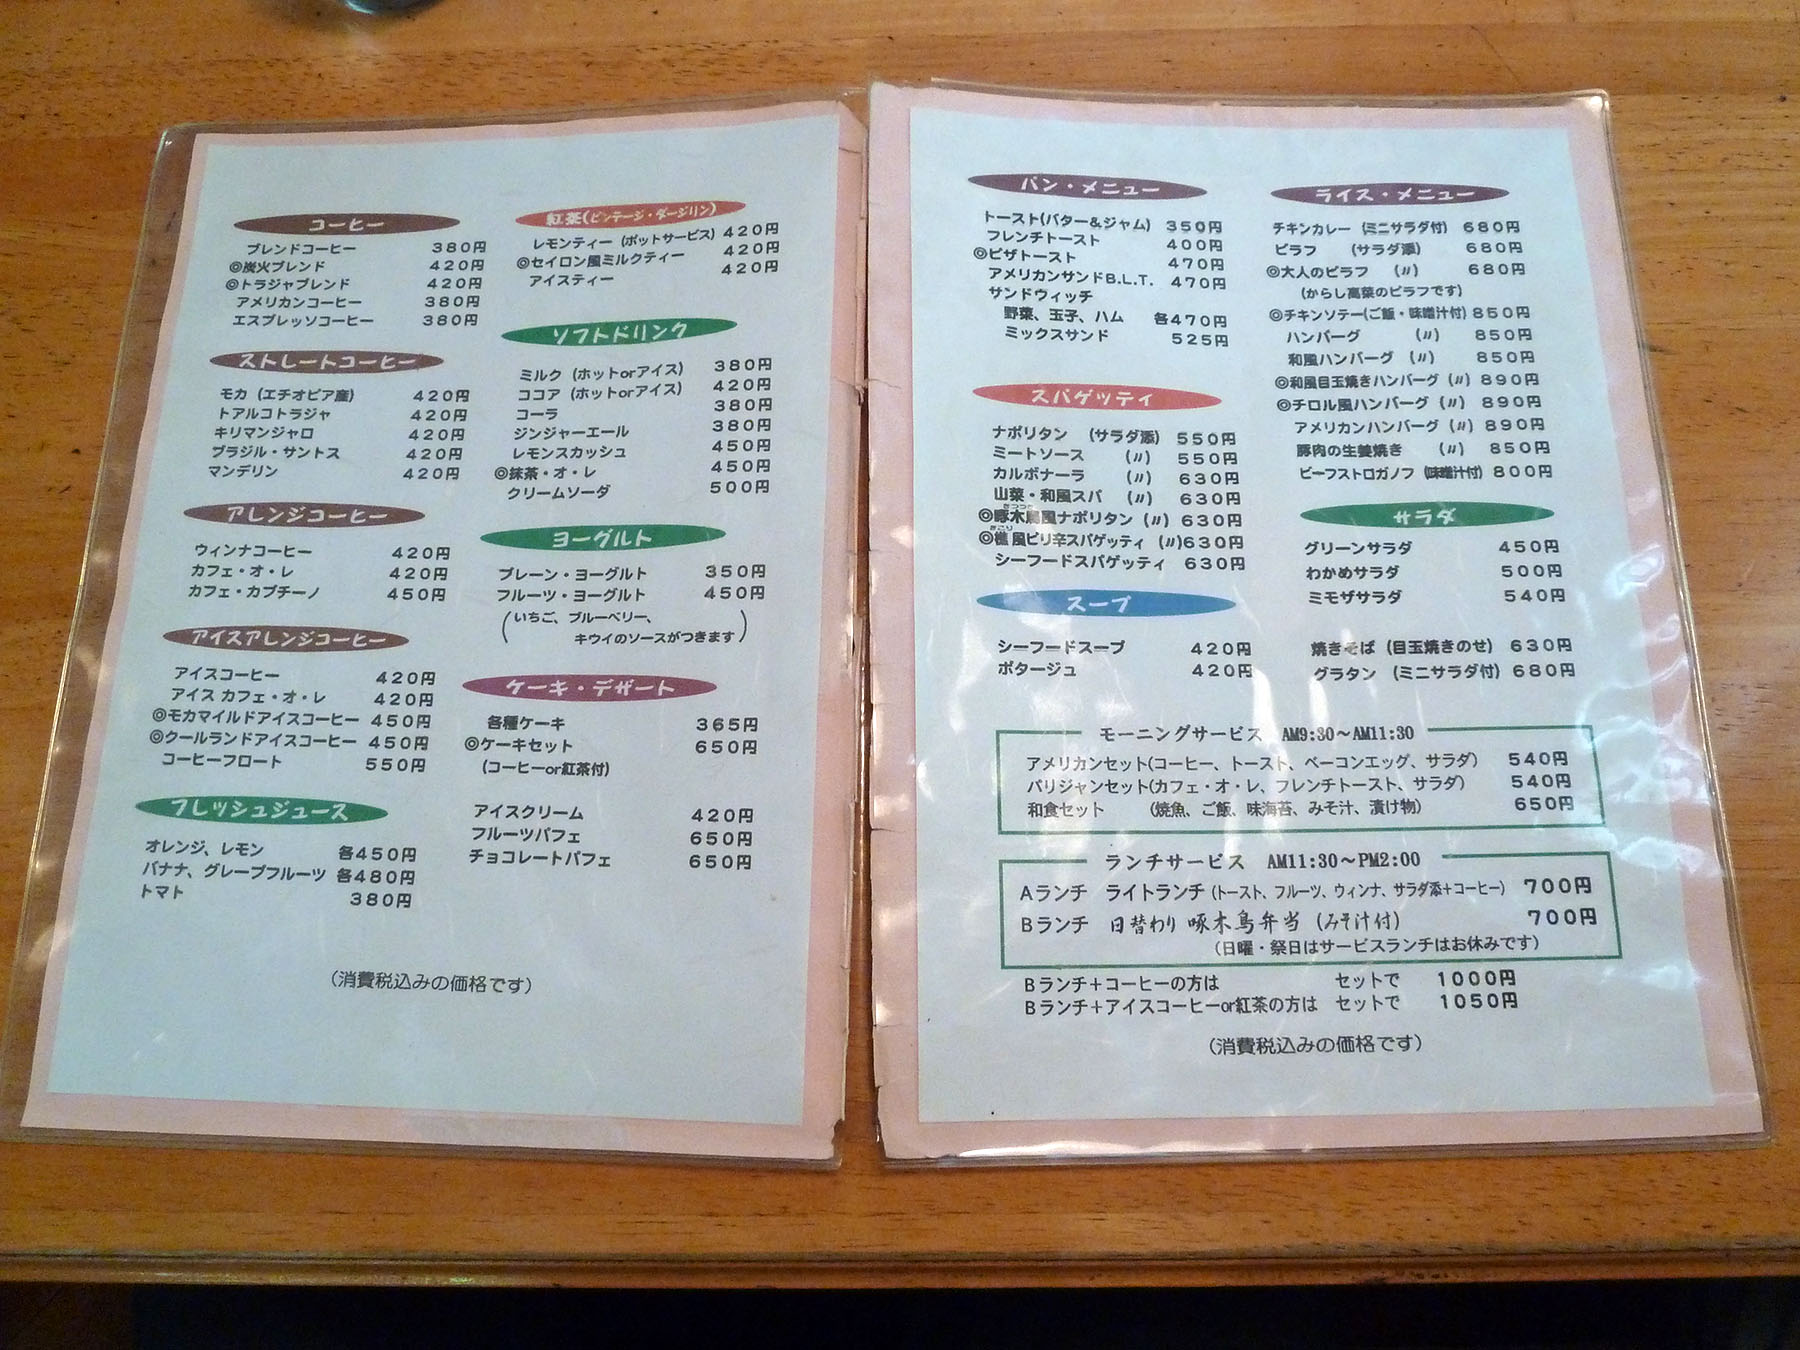 コーヒー
ブレンドコーヒー 380円
◎炭火ブレンド 420円
◎トラジャブレンド 420円
アメリカンコーヒー 380円
エスプレッソコーヒー 380円
ストレートコーヒー
モカ (エチオピア産) 420円
トアルコトラジャ 420円
キリマンジャロ 420円
ブラジル・サントス 420円
マンデリン 420円
アレンジコーヒー
ウィンナコーヒー 420円
カフェ・オ・レ 420円
カフェ・カプチーノ 450円
アイスアレンジコーヒー
アイスコーヒー 420円
アイス カフェ・オ・レ 420円
◎モカマイルドアイスコーヒー 450円
◎クールランドアイスコーヒー 450円
コーヒーフロート 550円
フレッシュジュース
オレンジ、レモン 各450円
バナナ、グレープフルーツ 各480円
トマト 380円
紅茶(ビンテージ・ダージリン)
レモンティー (ポットサービス) 420円
◎セイロン風ミルクティー 420円
アイスティー 420円
ソフトドリンク
ミルク (ホットorアイス) 380円
ココア (ホットorアイス) 420円
コーラ 380円
ジンジャーエール 380円
レモンスカッシュ 450円
◎抹茶・オ・レ 450円
クリームソーダ 500円
ヨーグルト
プレーン・ヨーグルト 350円
フルーツ・ヨーグルト 450円
(いちご、ブルーベリー、
キウイのソースがつきます)
ケーキ・デザート
各種ケーキ 365円
◎ケーキセット 650円
(コーヒーor紅茶付)
アイスクリーム 420円
フルーツパフェ 650円
チョコレートパフェ 650円
(消費税込みの価格です)
パン・メニュー
トースト(バター&ジャム) 350円
フレンチトースト 400円
◎ピザトースト 470円
アメリカンサンドB.L.T. 470円
サンドウィッチ
野菜、玉子、ハム 各470円
ミックスサンド 525円
スパゲッティ
ナポリタン (サラダ添) 550円
ミートソース (〃) 550円
カルボナーラ (〃) 630円
山菜・和風スパ (〃) 630円
きつつき
◎啄木鳥風ナポリタン (〃) 630円
きこり
◎樵風ピリ辛スパゲッティ (〃) 630円
シーフードスパゲッティ 630円
スープ
シーフードスープ 420円
ポタージュ 420円
ライス・メニュー
チキンカレー (ミニサラダ付) 680円
ピラフ (サラダ添) 680円
◎大人のピラフ (〃) 680円
(からし高菜のピラフです)
◎チキンソテー(ご飯・味噌汁付) 850円
ハンバーグ (〃) 850円
和風ハンバーグ (〃) 850円
◎和風目玉焼きハンバーグ (〃) 890円
◎チロル風ハンバーグ (〃) 890円
アメリカンハンバーグ (〃) 890円
豚肉の生姜焼き (〃) 850円
ビーフストロガノフ (味噌汁付) 800円
サラダ
グリーンサラダ 450円
わかめサラダ 500円
ミモザサラダ 540円
焼きそば (目玉焼きのせ) 630円
グラタン (ミニサラダ付) 680円
モーニングサービス AM9:30～AM11:30
アメリカンセット(コーヒー、トースト、ベーコンエッグ、サラダ) 540円
パリジャンセット(カフェ・オ・レ、フレンチトースト、サラダ) 540円
和食セット (焼魚、ご飯、味海苔、みそ汁、漬け物) 650円
ランチサービス AM11:30～PM2:00
Aランチ ライトランチ (トースト、フルーツ、ウィンナ、サラダ添+コーヒー) 700円
Bランチ 日替わり 啄木鳥弁当 (みそ汁付) 700円
(日曜・祭日はサービスランチはお休みです)
Bランチ+コーヒーの方は セットで 1000円
Bランチ+アイスコーヒーor紅茶の方は セットで 1050円
(消費税込みの価格です)